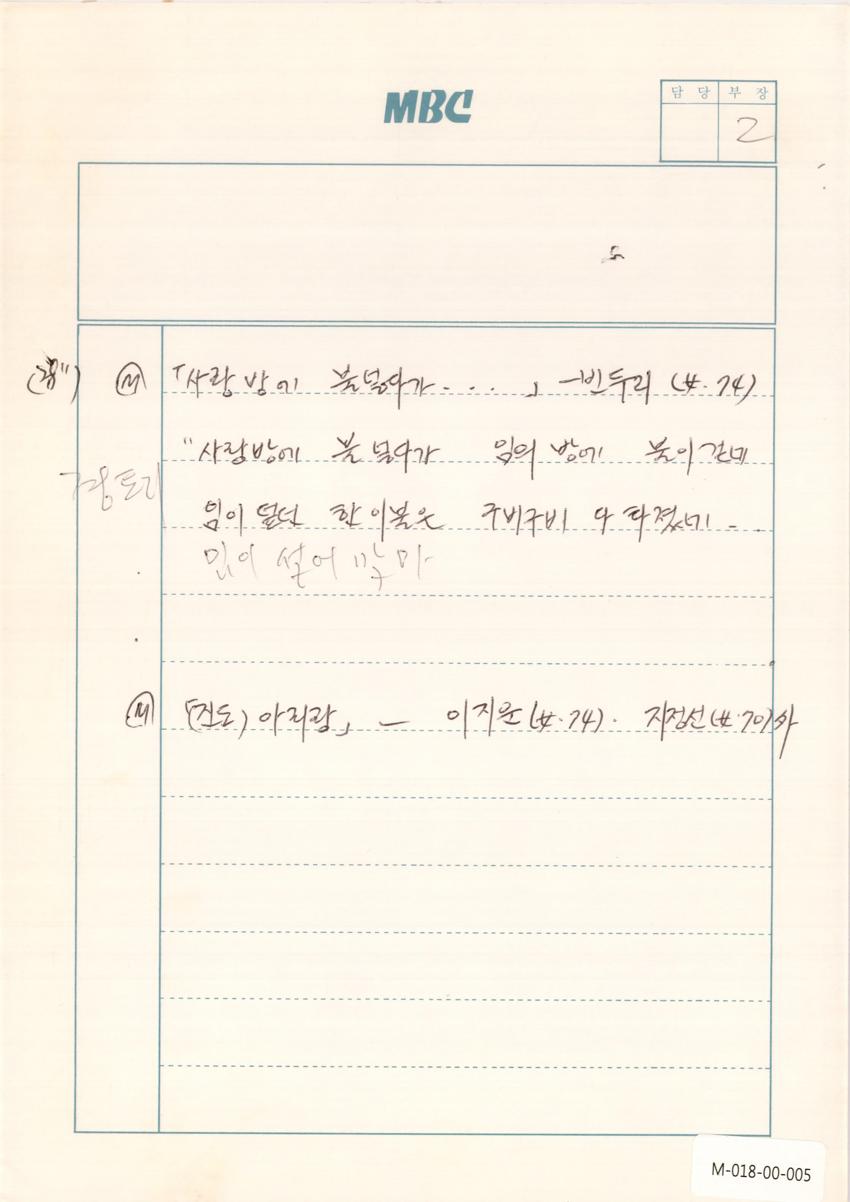 MBC
담 당 부 장
2
Ⓜ 「사랑방에 불넣다가 . . . 」 — 빈두리 (女. 74)
"사랑방에 불 넣다가 임의 방에 불이 간네
경토리
임이 덮던 한 이불은 구비구비 다 타졌네 . .
Ⓜ 「(진도) 아리랑」 — 이지윤 (女. 74). 지정선 (女. 70)外
M-018-00-005